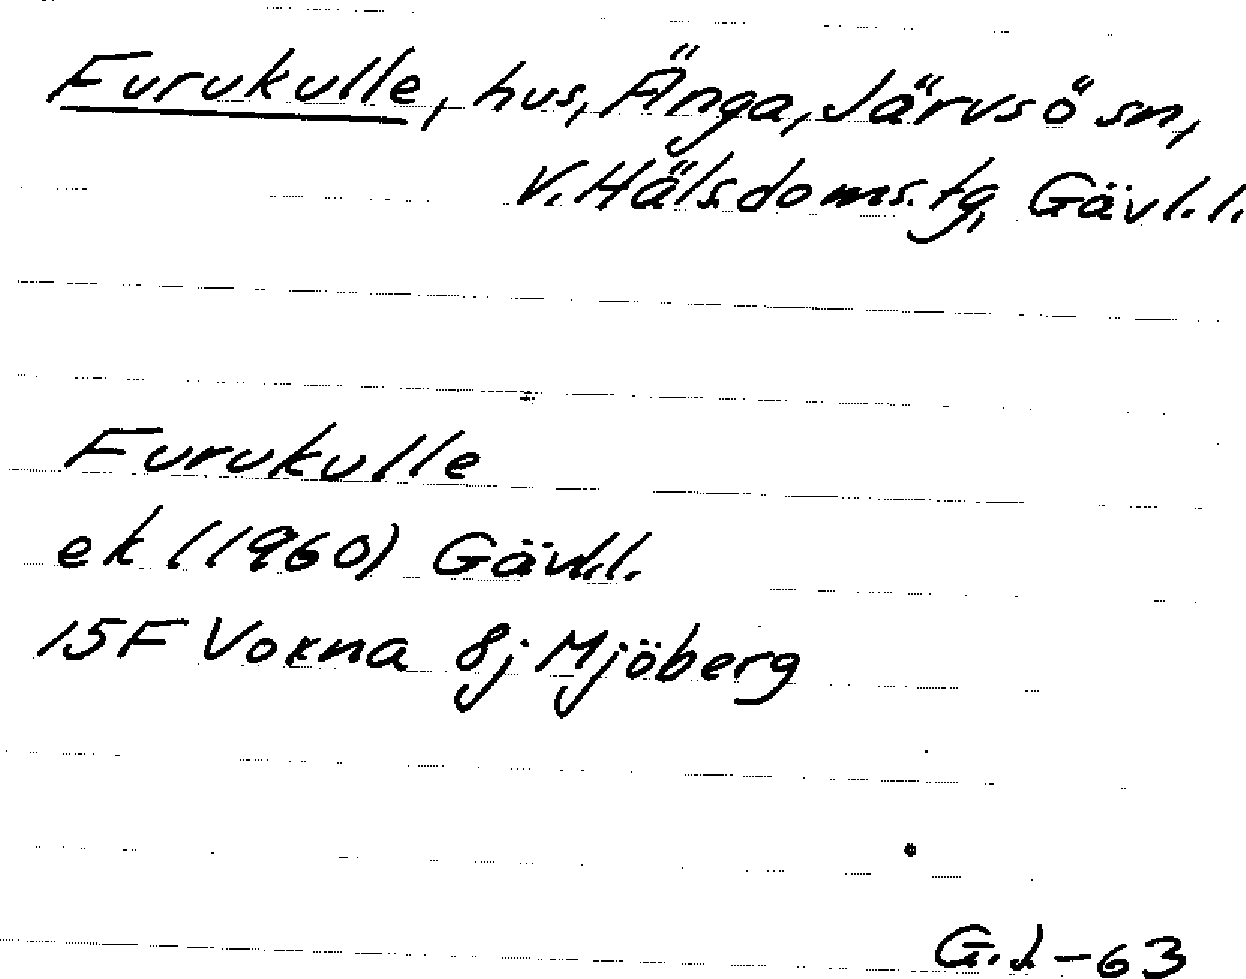 Furukulle, hus, Änga, Järvsö sn,
V. Häls. doms. tg, Gävl. l.
Furukulle
ek (1960) Gävl.l.
15F Voxna 8j Mjöberg
G.J-63